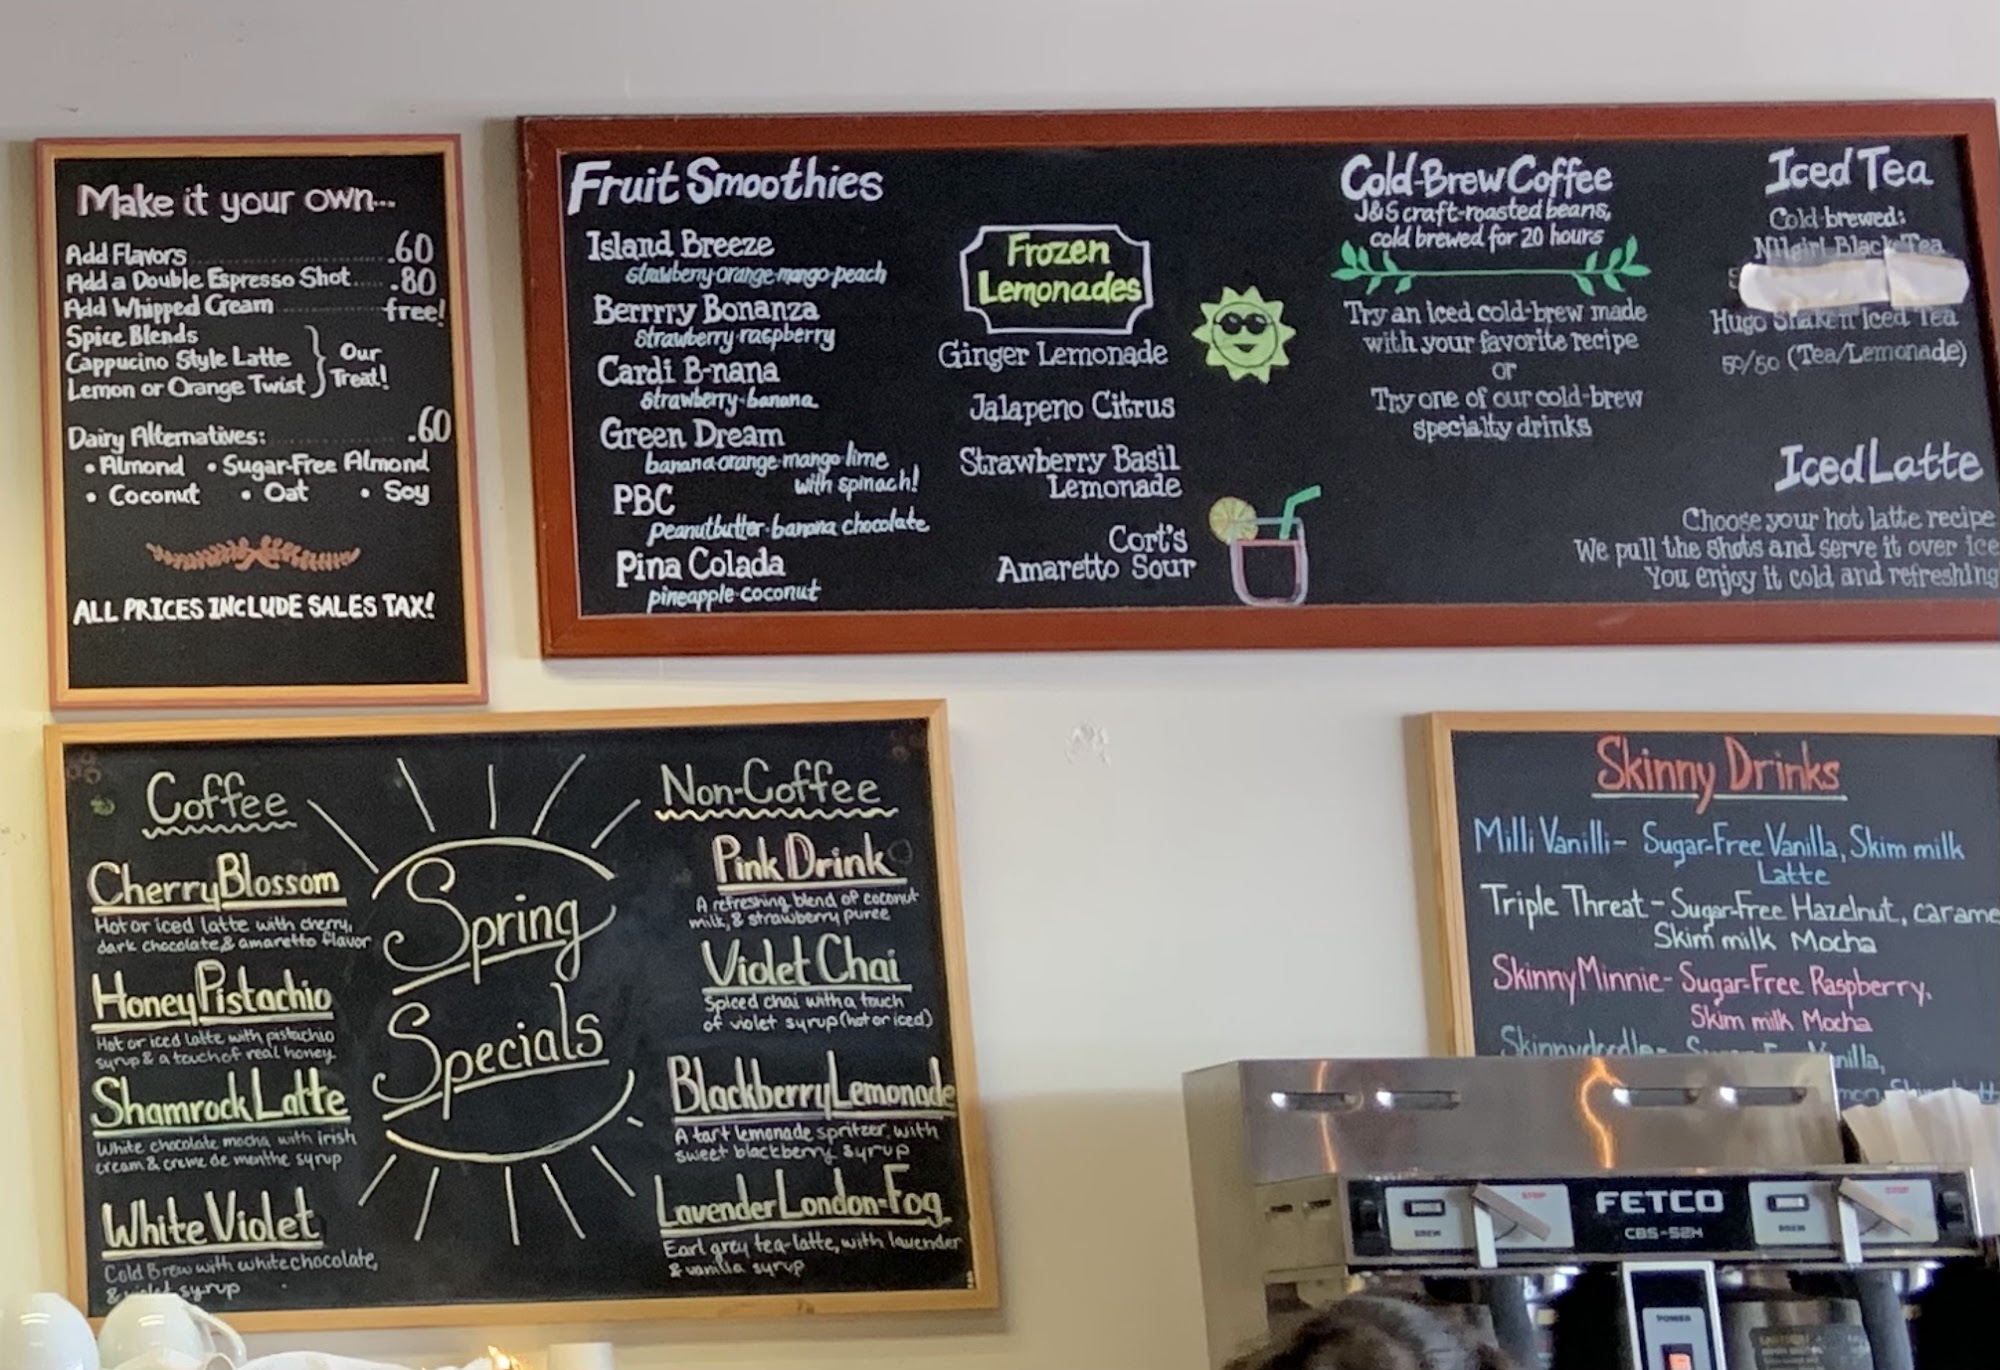 Make it your own...
Add Flavors .60
Add a Double Espresso Shot .80
Add Whipped Cream free!
Spice Blends
Cappucino Style Latte
Lemon or Orange Twist
Our
Treat!
Dairy Alternatives: .60
• Almond • Sugar-Free Almond
• Coconut • Oat • Soy
ALL PRICES INCLUDE SALES TAX!
Fruit Smoothies
Island Breeze
strawberry·orange·mango·peach
Berrry Bonanza
strawberry·raspberry
Cardi B-nana
strawberry·banana
Green Dream
banana·orange·mango·lime
with spinach!
PBC
peanutbutter·banana chocolate
Pina Colada
pineapple·coconut
Frozen
Lemonades
Ginger Lemonade
Jalapeno Citrus
Strawberry Basil
Lemonade
Cort's
Amaretto Sour
Cold-Brew Coffee
J&S craft-roasted beans,
cold brewed for 20 hours
Try an iced cold-brew made
with your favorite recipe
or
Try one of our cold-brew
specialty drinks
Iced Tea
Cold-brewed:
Nilgiri Black Tea
Hugo Shaken Iced Tea
50/50 (Tea/Lemonade)
Iced Latte
Choose your hot latte recipe
We pull the shots and serve it over ice
You enjoy it cold and refreshing
Coffee
Cherry Blossom
Hot or iced latte with cherry,
dark chocolate, & amaretto flavor
Honey Pistachio
Hot or iced latte with pistachio
syrup & a touch of real honey.
Shamrock Latte
White chocolate mocha with irish
cream & creme de menthe syrup
White Violet
Cold Brew with white chocolate,
& violet syrup
Spring
Specials
Non-Coffee
Pink Drink
A refreshing blend of coconut
milk, & strawberry puree
Violet Chai
Spiced chai with a touch
of violet syrup (hot or iced)
Blackberry Lemonade
A tart lemonade spritzer, with
sweet blackberry syrup
Lavender London-Fog
Earl grey tea-latte, with lavender
& vanilla syrup
Skinny Drinks
Milli Vanilli- Sugar-Free Vanilla, Skim milk
Latte
Triple Threat- Sugar-Free Hazelnut, carame
Skim milk Mocha
Skinny Minnie- Sugar-Free Raspberry,
Skim milk Mocha
Skinnydoodle- Sugar-Free Vanilla,
FETCO
CBS-52H
BREW
STOP
BREW
STOP
POWER